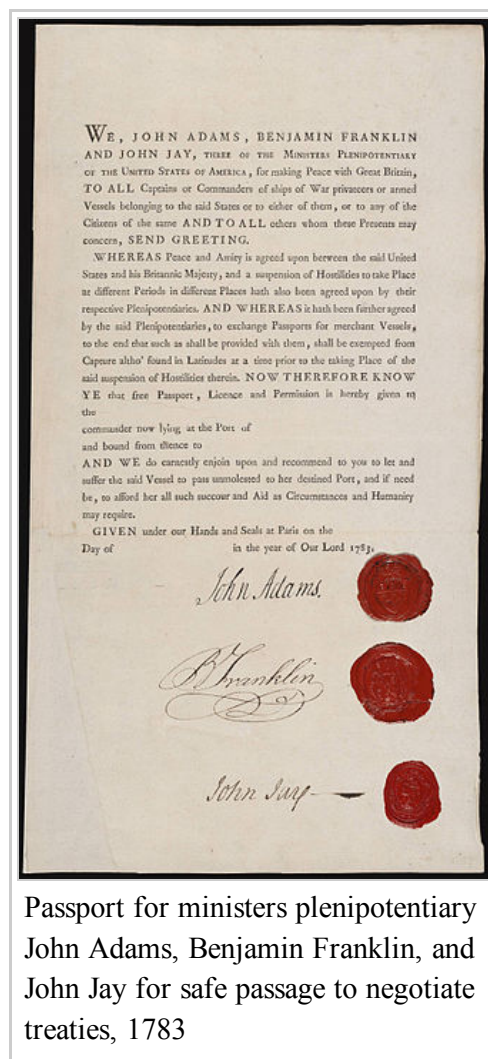 WE, JOHN ADAMS, BENJAMIN FRANKLIN
AND JOHN JAY, THREE OF THE MINISTERS PLENIPOTENTIARY
OF THE UNITED STATES OF AMERICA, for making Peace with Great Britain,
TO ALL Captains or Commanders of ships of War privateers or armed
Vessels belonging to the said States or to either of them, or to any of the
Citizens of the same AND TO ALL others whom these Presents may
concern, SEND GREETING.
WHEREAS Peace and Amity is agreed upon between the said United
States and his Britannic Majesty, and a suspension of Hostilities to take Place
at different Periods in different Places hath also been agreed upon by their
respective Plenipotentiaries. AND WHEREAS it hath been further agreed
by the said Plenipotentiaries, to exchange Passports for merchant Vessels,
to the end that such as shall be provided with them, shall be exempted from
Capture altho' found in Latitudes at a time prior to the taking Place of the
said suspension of Hostilities therein. NOW THEREFORE KNOW
YE that free Passport, Licence and Permission is hereby given to
the
commander now lying at the Port of
and bound from thence to
AND WE do earnestly enjoin upon and recommend to you to let and
suffer the said Vessel to pass unmolested to her destined Port, and if need
be, to afford her all such succour and Aid as Circumstances and Humanity
may require.
GIVEN under our Hands and Seals at Paris on the
Day of in the year of Our Lord 1783.
John Adams.
B Franklin
John Jay
Passport for ministers plenipotentiary
John Adams, Benjamin Franklin, and
John Jay for safe passage to negotiate
treaties, 1783